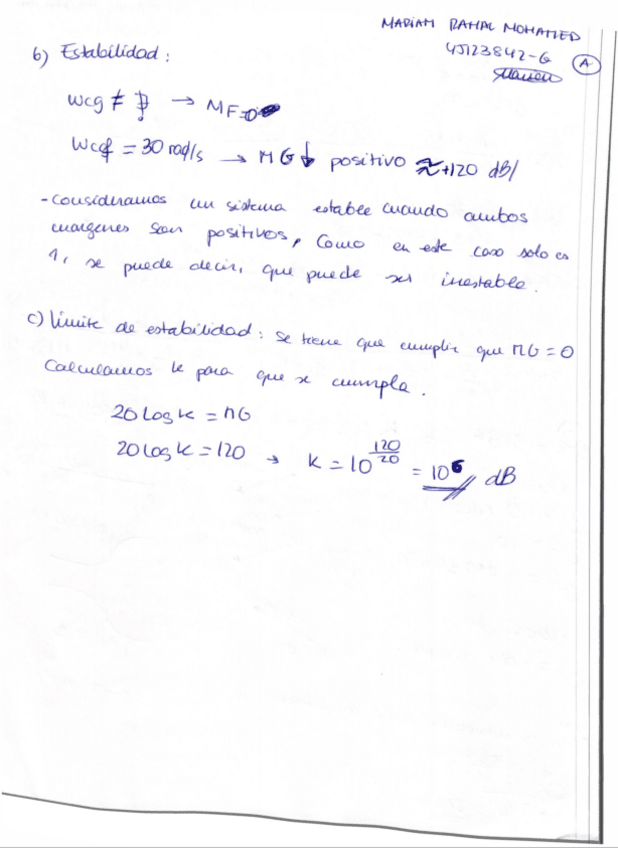 MARIAM RAHAL MOHAMED
45123842-G
A
b) Estabilidad:
wcg ≠ ∄ → MF=0
wcf = 30 rad/s → MG ↓ positivo ≈+120 dB/
- Consideramos un sistema estable cuando ambos
margenes son positivos, Como en este caso solo es
1, se puede decir, que puede ser inestable.
c) límite de estabilidad: se tiene que cumplir que MG = 0
Calculamos k para que se cumpla.
20 Log k = MG
20 Log k = 120 → k = 10^(120/20) = 10^6 dB